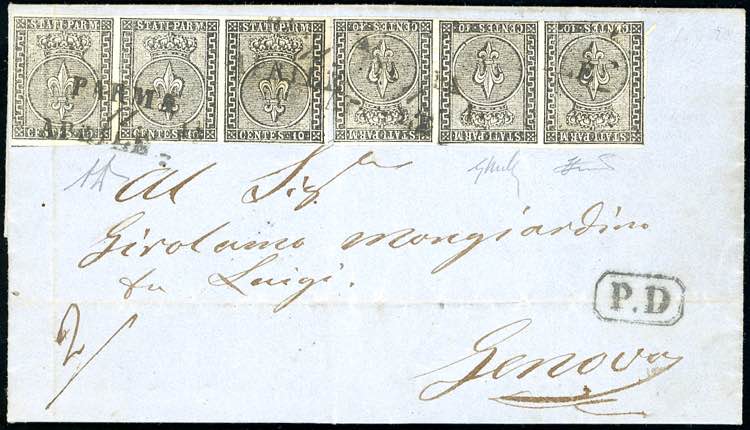 STATI PARM. STATI PARM. STATI PARM.
CENTES. 10 CENTES. 10 CENTES. 10
CENTES. 10 CENTES. 10 CENTES. 10
STATI PARM. STATI PARM. STATI PARM.
PARMA
11
APRILE
Al Sigr
Girolamo Mongiardino
fu Luigi.
P.D
Genova
2/